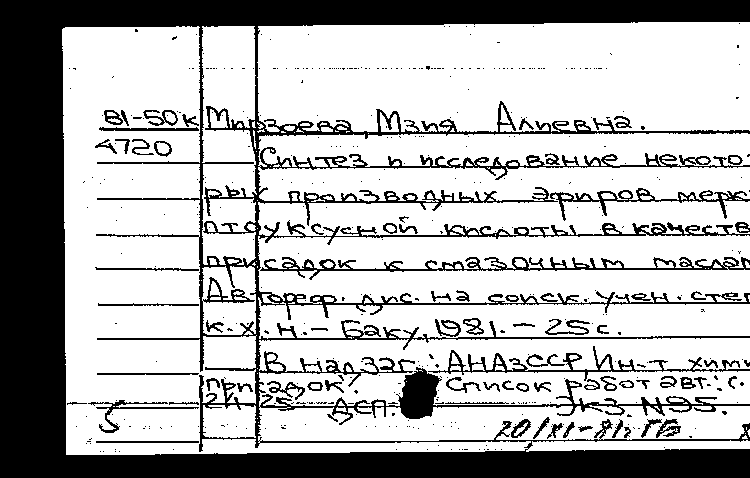 81-50к Мирзоева, Мзия Алиевна.
4720 Синтез и исследование некото-
рых производных эфиров мерка
птоуксусной кислоты в качеств
присадок к смазочным маслам
Автореф. дис. на соиск. учен. степ
к.х.н. - Баку, 1981. - 25 с.
В надзаг.: АНАзССР, Ин-т хими
присадок. Список работ авт.: с.
24-25 ДСП. Экз. №95.
5 20/XI-81г. ГБ